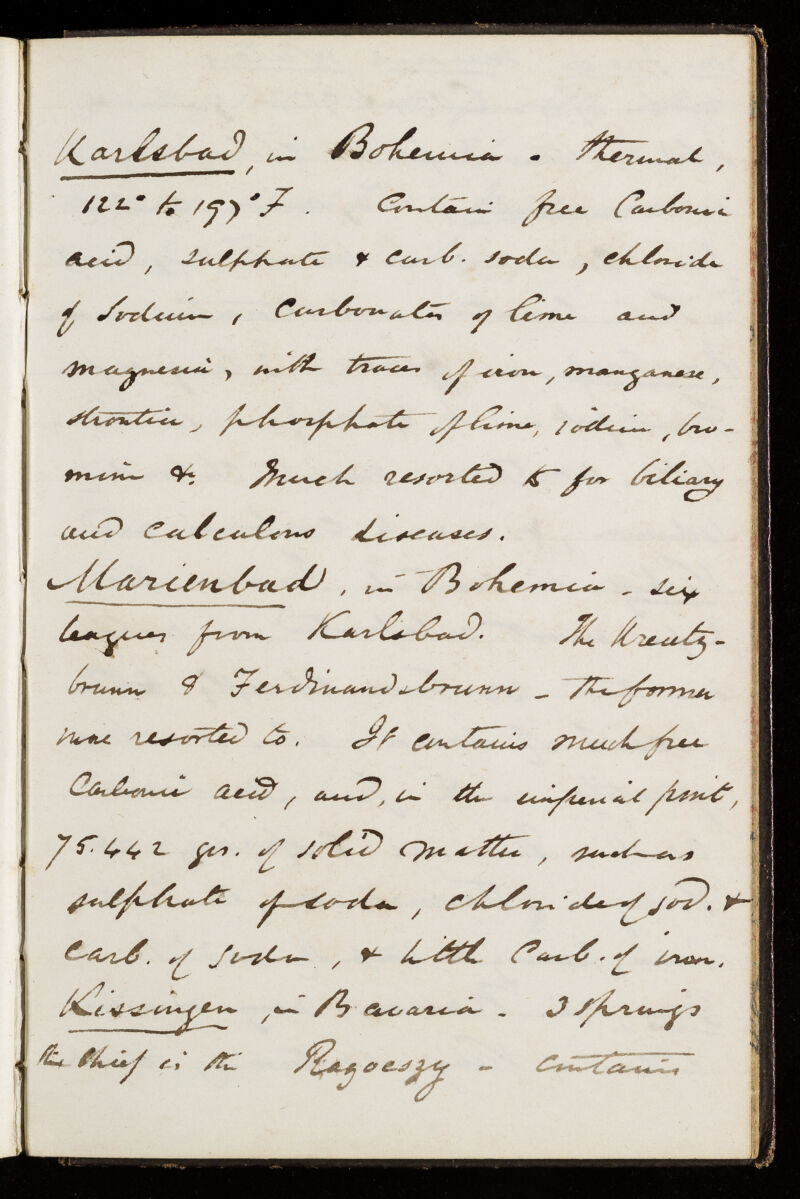 Karlsbad, in Bohemia - thermal,
122° to 197° F. Contain free Carbonic
acid, sulphate & carb. soda, chloride
of Sodium, Carbonates of lime and
magnesia, with traces of iron, manganese,
strontia, phosphate of lime, iodine, bro-
mine &c. Much resorted to for biliary
and calculous diseases.
Marienbad, in Bohemia - six
leagues from Karlsbad. The Kreutz-
brunn & Ferdinandsbrunn - the former
more resorted to. It contains much free
Carbonic acid, and, in the imperial pint,
75.442 grs. of solid matter, such as
sulphate of soda, chloride of sod. &
carb. of soda, & little Carb. of iron.
Kissingen, in Bavaria - 3 springs
the chief is the Ragoczy - contains